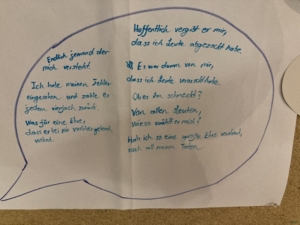 Endlich jemand der
mich versteht.
Ich habe meinen Fehler
eingesehen und zahle es
jedem vierfach zurück.
Was für eine Ehre,
dass er bei mir
Hoffentlich vergibt er mir,
dass ich Leute abgezockt habe.
Es war dumm von mir,
dass ich Leute verarscht habe.
Ob er ihm schmeckt?
Von allen Leuten,
wieso wählt er mich?
Hab ich so eine große Ehre verdient,
nach all meinen Taten.